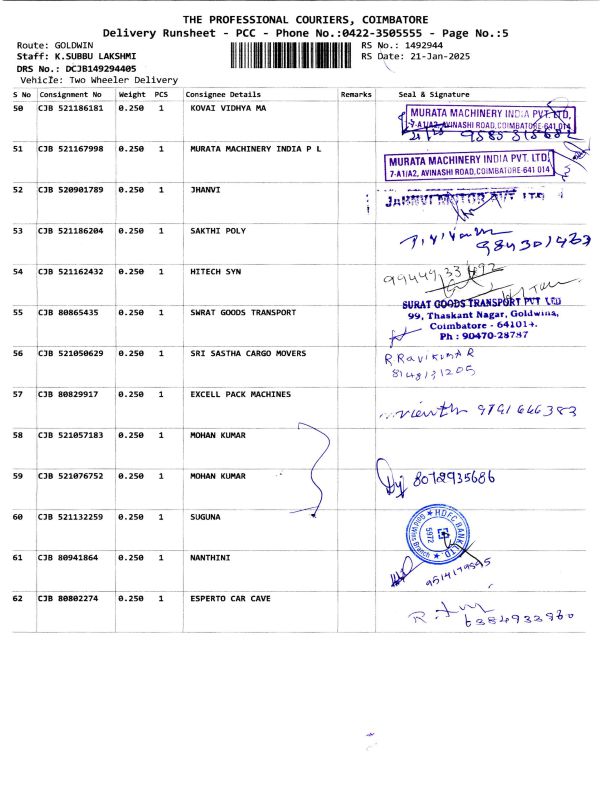 THE PROFESSIONAL COURIERS, COIMBATORE
Delivery Runsheet - PCC - Phone No.:0422-3505555 - Page No.:5
Route: GOLDWIN
RS No.: 1492944
Staff: K.SUBBU LAKSHMI
RS Date: 21-Jan-2025
DRS No.: DCJB149294405
Vehicle: Two Wheeler Delivery
S No Consignment No Weight PCS Consignee Details Remarks Seal & Signature
50 CJB 521186181 0.250 1 KOVAI VIDHYA MA
MURATA MACHINERY INDIA PVT. LTD,
7-A1/A2, AVINASHI ROAD, COIMBATORE-641 014
51 CJB 521167998 0.250 1 MURATA MACHINERY INDIA P L
MURATA MACHINERY INDIA PVT. LTD,
7-A1/A2, AVINASHI ROAD, COIMBATORE-641 014
52 CJB 520901789 0.250 1 JHANVI
53 CJB 521186204 0.250 1 SAKTHI POLY
54 CJB 521162432 0.250 1 HITECH SYN
55 CJB 80865435 0.250 1 SWRAT GOODS TRANSPORT
SURAT GOODS TRANSPORT PVT LTD
99, Thaskant Nagar, Goldwins,
Coimbatore - 641014.
Ph : 90470-28787
56 CJB 521050629 0.250 1 SRI SASTHA CARGO MOVERS
R RAVIKUMAR
8148131205
57 CJB 80829917 0.250 1 EXCELL PACK MACHINES
9791666383
58 CJB 521057183 0.250 1 MOHAN KUMAR
59 CJB 521076752 0.250 1 MOHAN KUMAR
8072935686
60 CJB 521132259 0.250 1 SUGUNA
HDFC BANK LTD
5972
61 CJB 80941864 0.250 1 NANTHINI
9514179595
62 CJB 80802274 0.250 1 ESPERTO CAR CAVE
6384933960